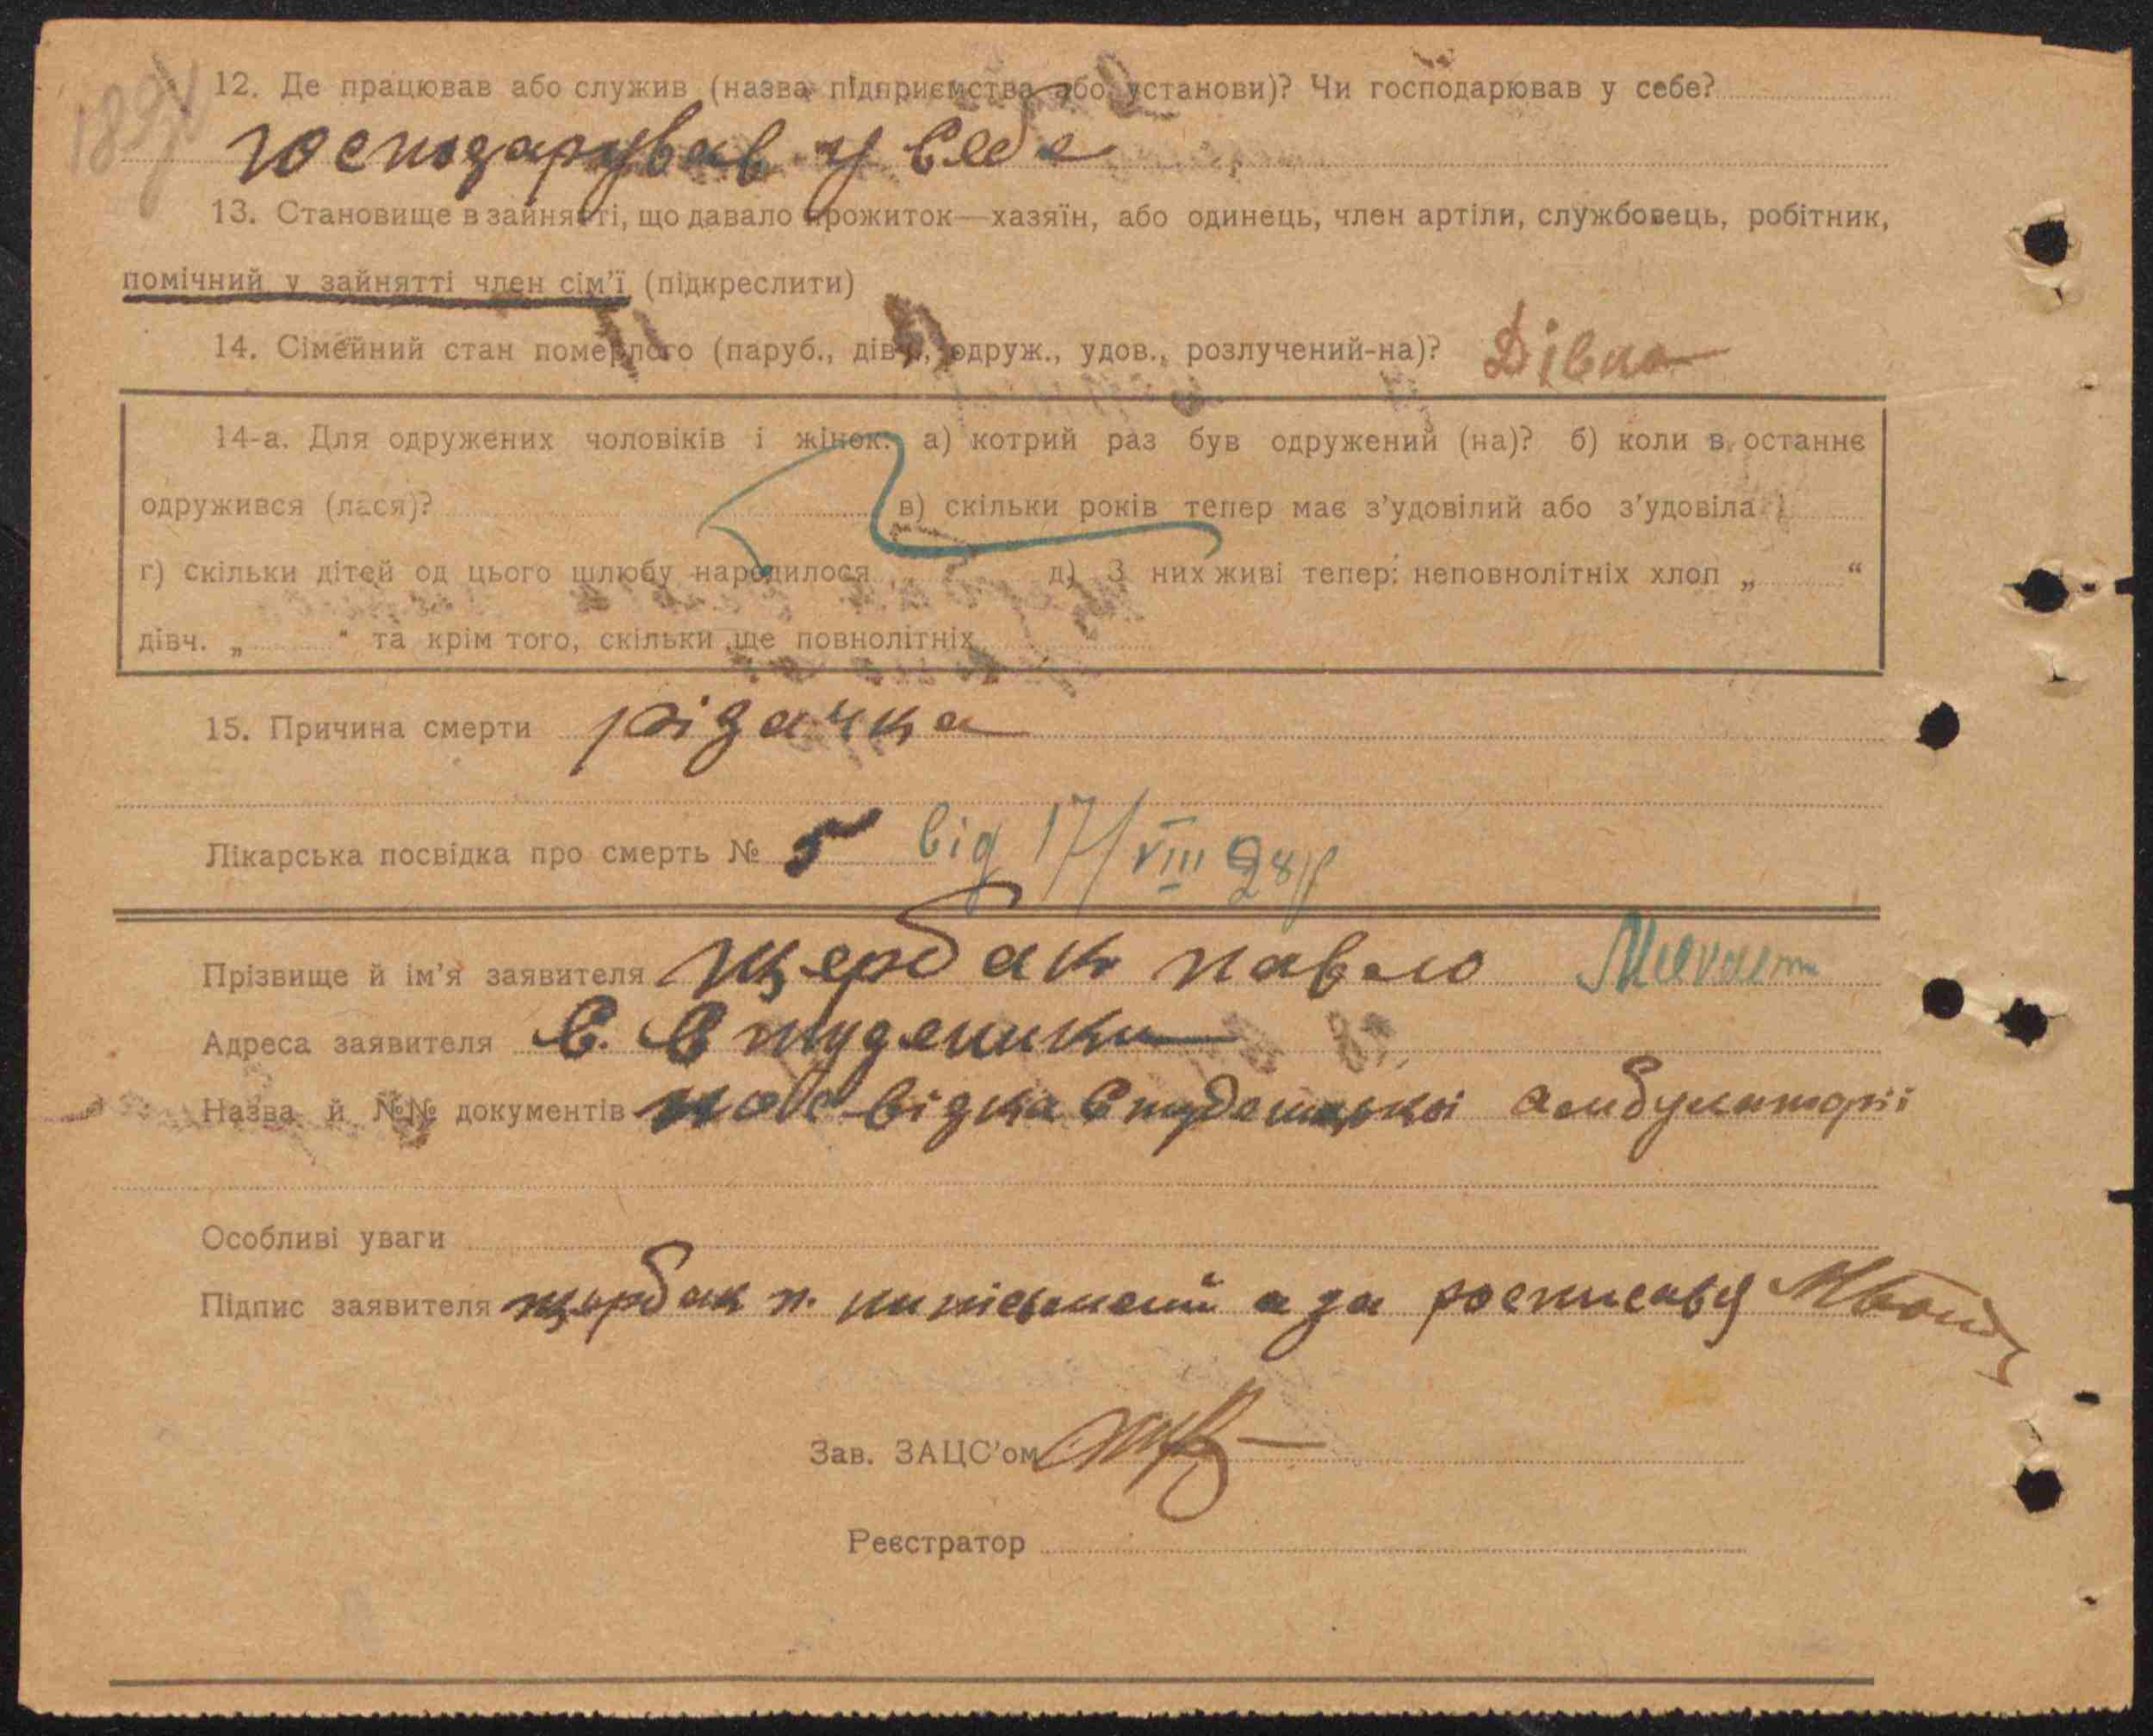 12. Де працював або служив (назва підприємства або установи)? Чи господарював у себе?
господарував у себе
13. Становище в зайнятті, що давало прожиток—хазяїн, або одинець, член артіли, службовець, робітник,
помічний у зайнятті член сім'ї (підкреслити)
14. Сімейний стан померлого (паруб., дівч., одруж., удов., розлучений-на)? Дівка
14-а. Для одружених чоловіків і жінок: а) котрий раз був одружений (на)? б) коли в останнє
одружився (лася)? в) скільки років тепер має з'удовілий або з'удовіла)
г) скільки дітей од цього шлюбу народилося д) З них живі тепер: неповнолітніх хлоп „ “
дівч. „ “ та крім того, скільки ще повнолітніх
15. Причина смерти різачка
Лікарська посвідка про смерть № 5 від 17/VIII 28 р
Прізвище й ім'я заявителя щербак павло
Адреса заявителя с. Студеники
Назва й №№ документів посвідка Студеницької амбулаторії
Особливі уваги
Підпис заявителя щербак п. росписався
Зав. ЗАЦС'ом
Реєстратор